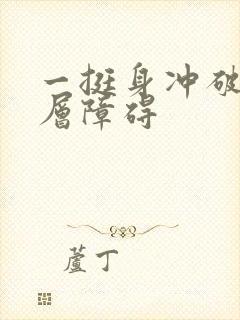 一挺身冲破
层障碍
蘆丁